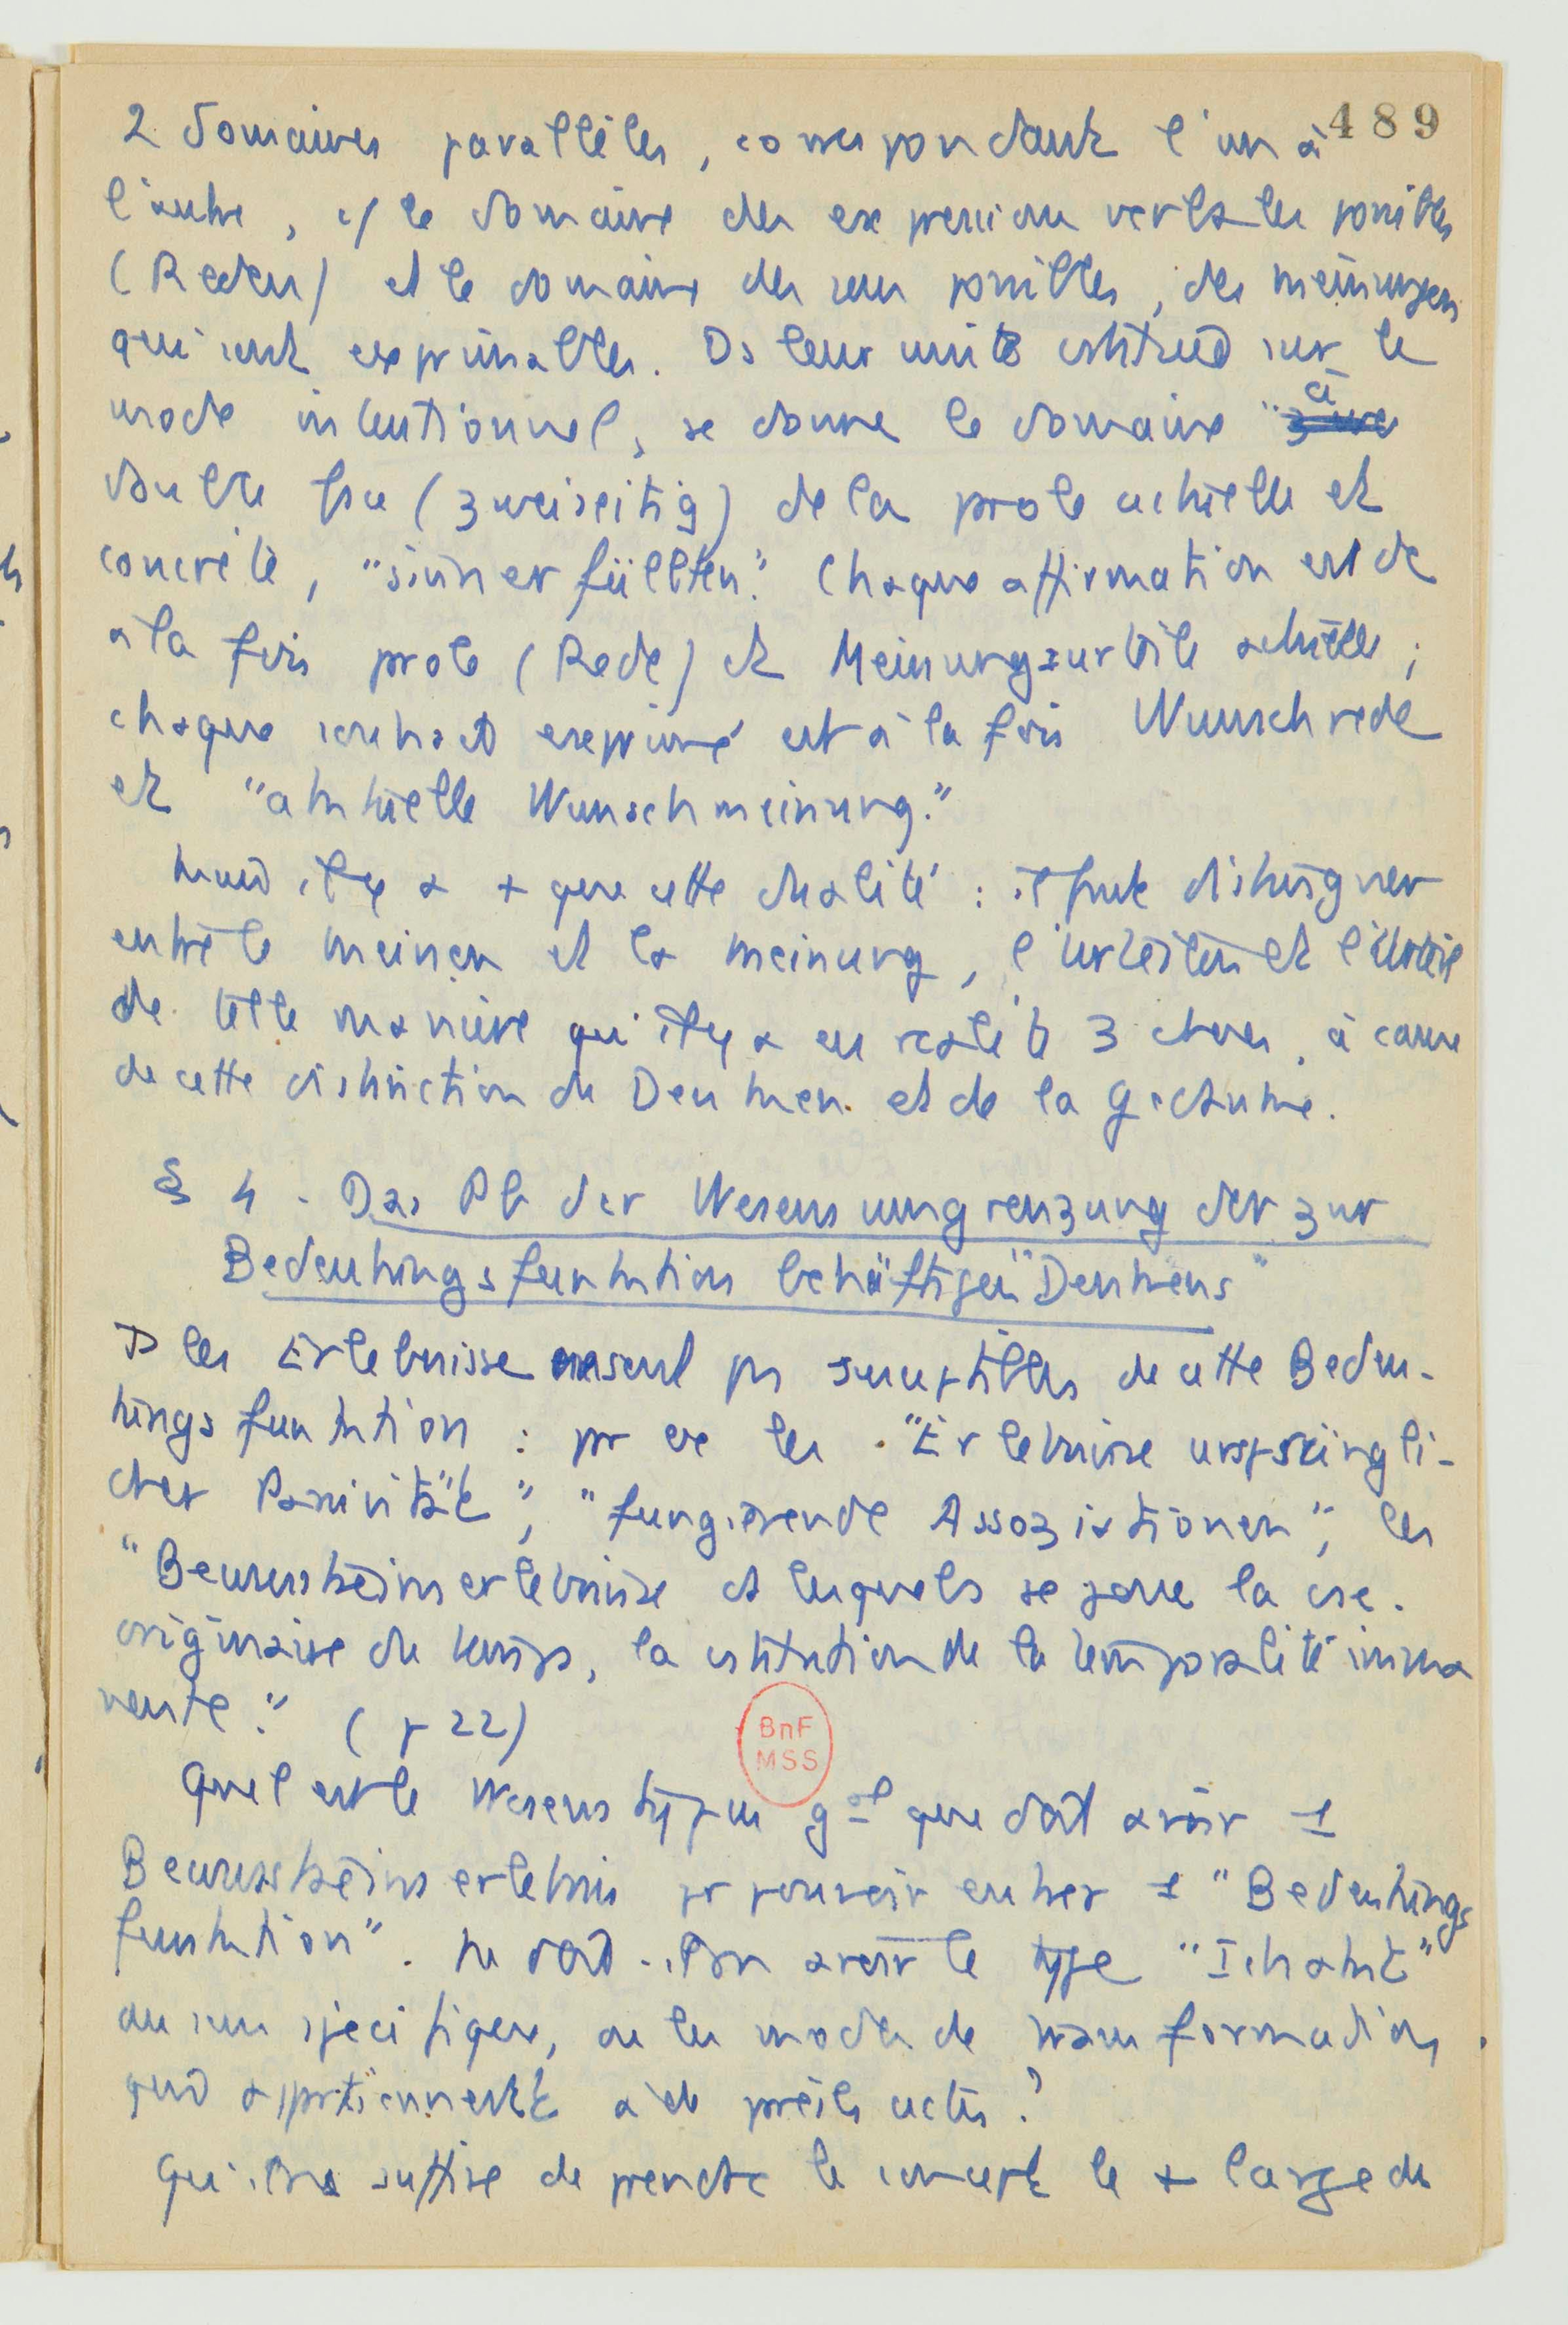 489
2 domaines parallèles, correspondant l'un à
l'autre, cf le domaine des expressions verbales possibles
(Reden) et le domaine des sens possibles, des Meinungen
qui sont exprimables. Ds leur unité cstituée sur le
mode intentionnel, se donne le domaine à
double face (zweiseitig) de la parole actuelle et
concrète, "sinnerfüllten". Chaque affirmation est dc
à la fois parole (Rede) et Meinungsurteile actuelle ;
chaque souhait exprimé est à la fois Wunschrede
et "aktuelle Wunschmeinung".
Mais il y a + que cette dualité : il faut distinguer
entre le meinen et la Meinung, l'Urteilen et l'Urteil
de telle manière qu'il y a en réalité 3 choses, à cause
de cette distinction du Denken et de la Gedachte.
§ 4 - Das Pb der Wesensumgrenzung der zur
Bedeutungsfunktion behäftigen "Denkens"
Ts les Erlebnisse ne sont pas susceptibles de cette Bedeu-
tungsfunktion : pr ex les "Erlebnisse ursprüngli-
cher Passivität", "fungierende Assoziationen", les
"Bewusstseinserlebnisse ds lesquels se joue la csce
originaire du temps, la cstitution de la temporalité imma
nente". (p 22)
Quel est le Wesenstypus gal que doit avoir 1
Bewusstseinserlebnis pr pouvoir entrer 1 "Bedeutungs
funktion". Ne doit-il pas avoir le type "Ichakt"
au sens spécifique, ou les modes de transformation
qui appartiennent à de pareils actes ?
Qu'il ns suffise de prendre le concept le + large de
BnF
MSS